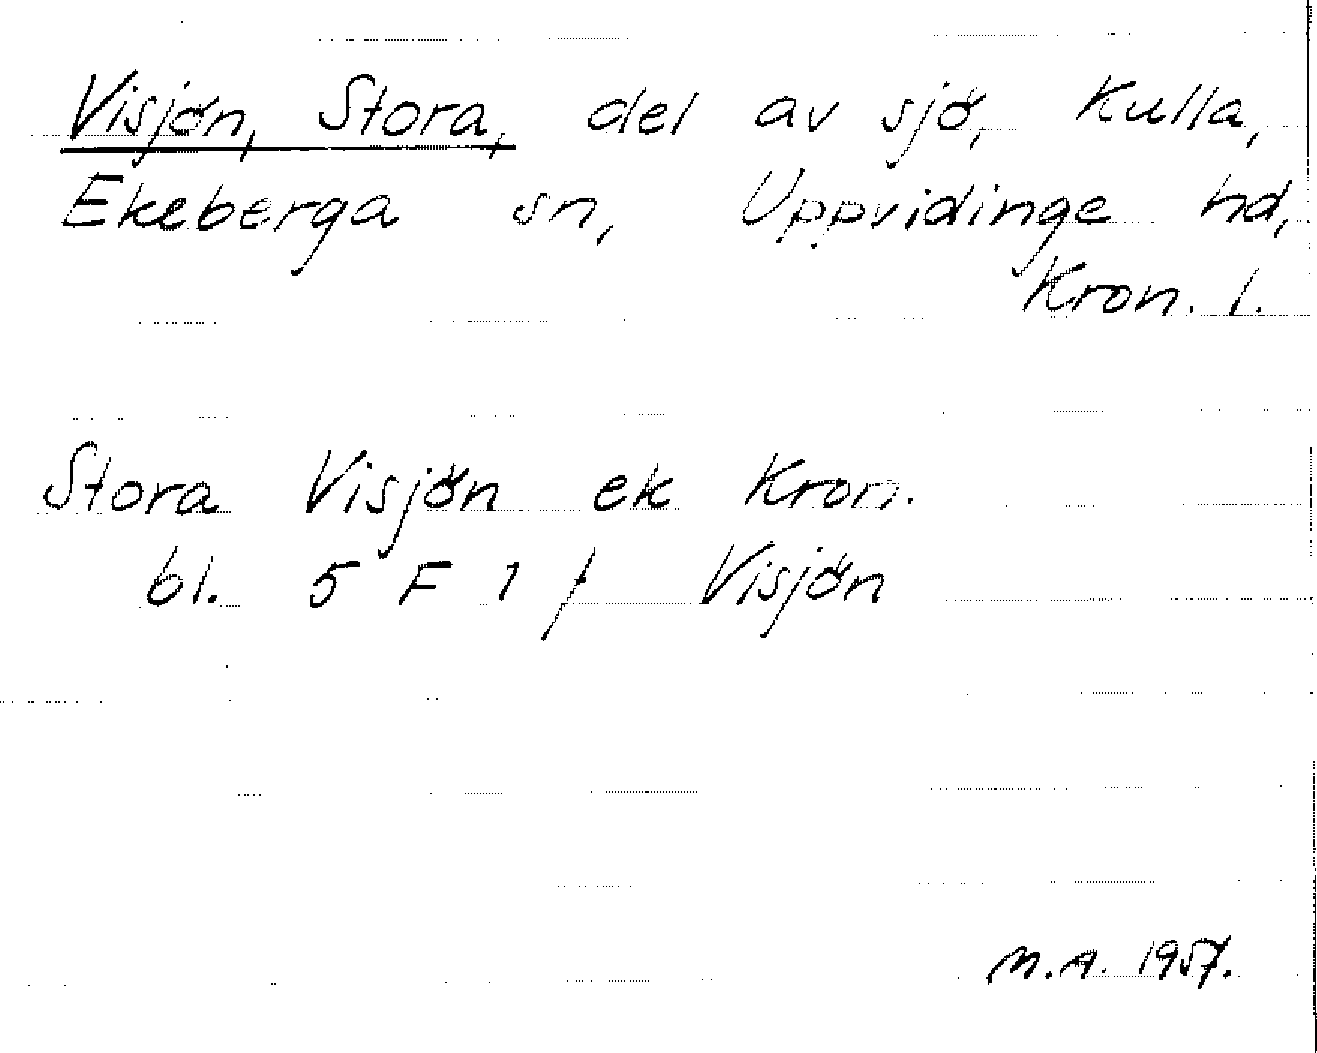 Visjön, Stora, del av sjö, Kulla,
Ekeberga sn, Uppvidinge hd,
Kron. l.
Stora Visjön ek Kron.
bl. 5 F 1 f Visjön
M.A. 1957.